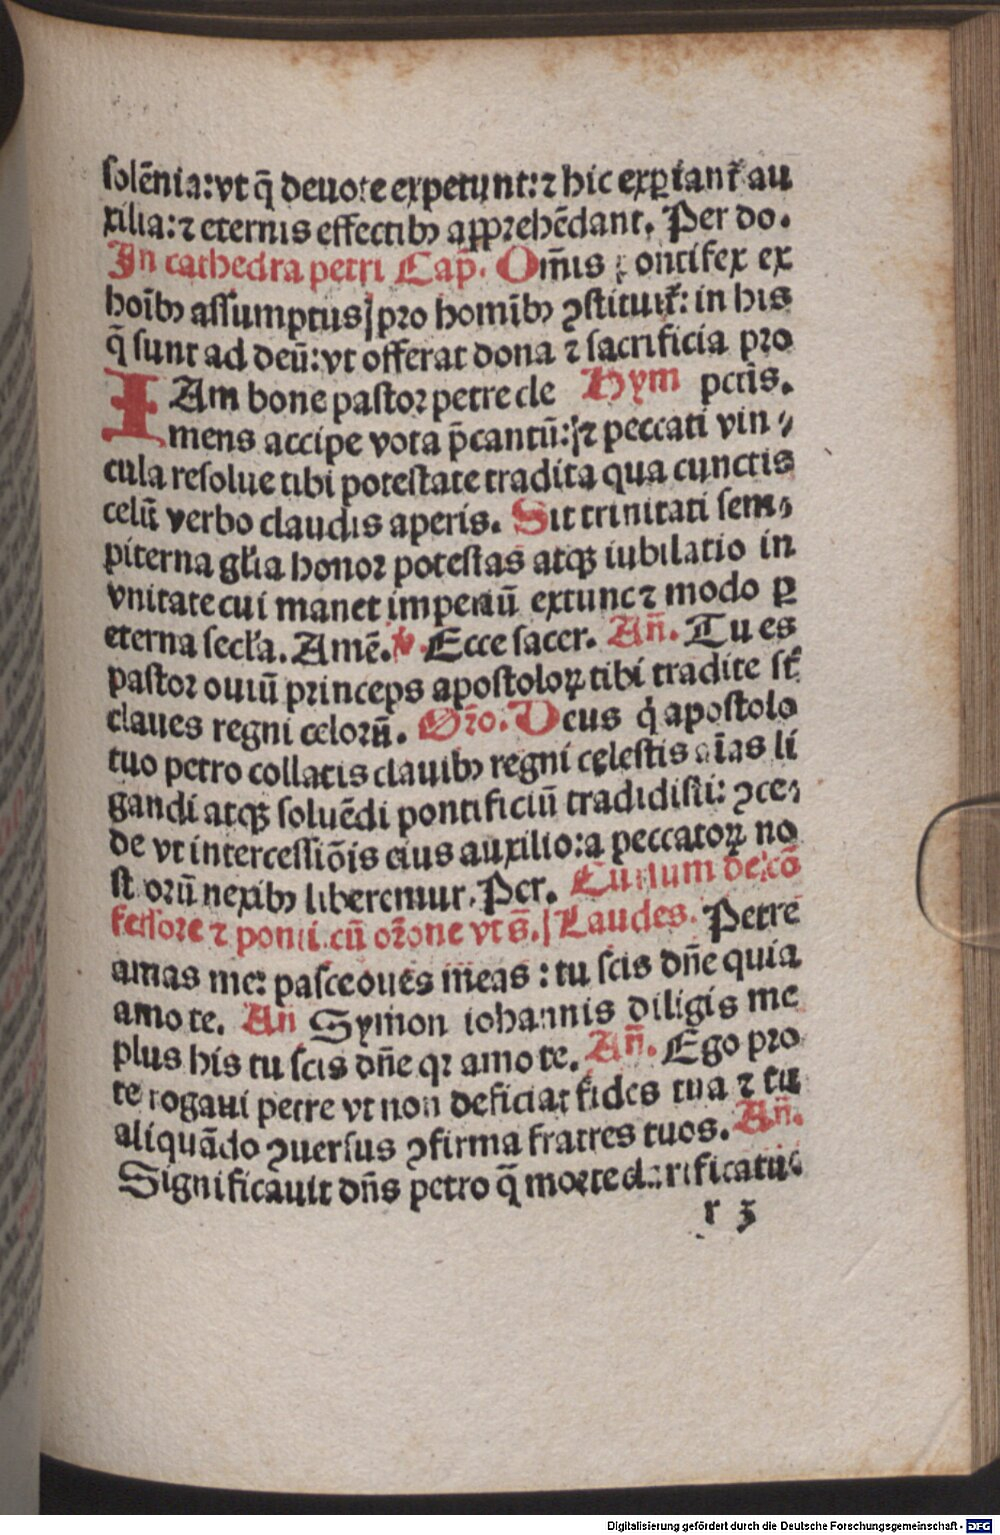 solēnia: vt q̄ deuote expetunt: ⁊ hic exꝑiant᷑ au
xilia: ⁊ eternis effectibꝰ apprehēdant. Per do.
In cathedra petri Cap̄. Om̄is pontifex ex
hoībꝰ assumptus| pro homībꝰ ꝯstituit᷑: in his
q̄ sunt ad deū: vt offerat dona ⁊ sacrificia pro
IAm bone pastor petre cle Hym pctīs.
mens accipe vota p̄cantū: ⁊ peccati vin⸗
cula resolue tibi potestate tradita qua cunctis
celū verbo claudis aperis. Sit trinitati sem⸗
piterna gl̄ia honor potestas atqꝫ iubilatio in
vnitate cui manet imperiū extunc ⁊ modo ꝑ
eterna secl̄a. Amē. ℣. Ecce sacer. Añ. Tu es
pastor ouiū princeps apostoloꝝ tibi tradite st̄
claues regni celorū. Or̄o. Deus q̇ apostolo
tuo petro collatis clauibꝰ regni celestis aīas li
gandi atqꝫ soluēdi pontificiū tradidisti: ꝯce⸗
de vt intercessiōis eius auxilio: a peccatoꝝ no
storū nexibꝰ liberemur. Per. Cursum de cō
fessore ⁊ ponti. cū or̄one vt s̄.| Laudes. Petre
amas me: pasce oues meas: tu scis dn̄e quia
amo te. Añ Symon iohannis diligis me
plus his tu scis dn̄e qꝛ amo te. Añ. Ego pro
te rogaui petre vt non deficiat fides tua ⁊ tu
aliquādo ꝯuersus ꝯfirma fratres tuos. Añ.
Significauit dn̄s petro q̄ morte clarificatu⸗
r 3
Digitalisierung gefördert durch die Deutsche Forschungsgemeinschaft - DFG